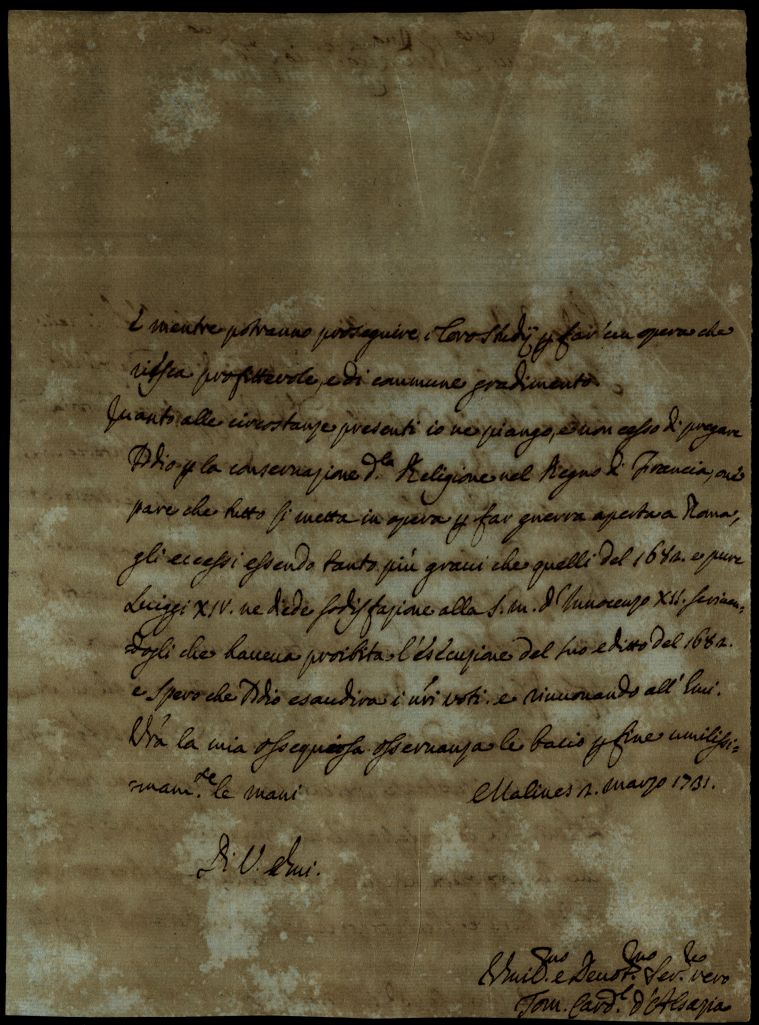 e mentre potranno proseguire i loro studij, e far un opera che
riesca profittevole, e di commune gradimento.
Quanto alle circostanze presenti io ne piango, e non cesso di pregare
Iddio p la conservazione d.la Religione nel Regno di Francia, ove
pare che tutto si metta in opera p far guerra aperta a Roma,
gli eccessi essendo tanto più gravi che quelli del 1682. e pure
Luiggi XIV. ne diede sodisfazione alla S. m. d'Innocenzo XII. scriven=
dogli che haveva proibita l'esecuzione del suo editto del 1682.
e spero che Iddio esaudira i nri voti. e rinuovando all' Emi.
Vra la mia ossequiosa osservanza le bacio p fine umilissi=
=mam.te le mani
Malines 2. marzo 1731.
Di V. Emi.
Umil.mo e Devot.mo Ser.re vero
Tom. Card.l d'Alsazia